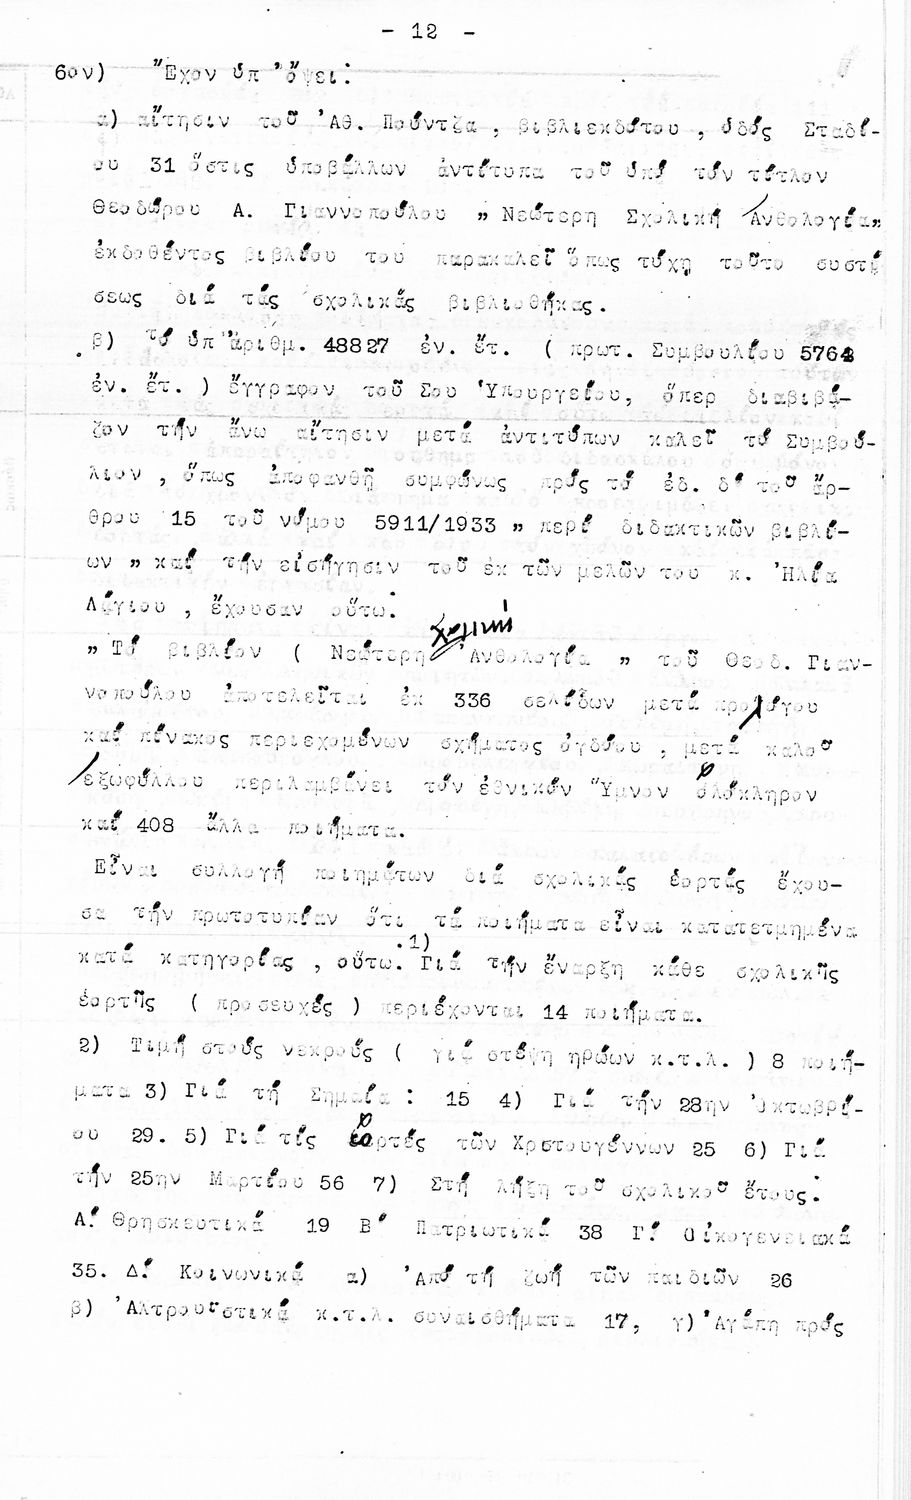 - 12 -
6ον) Ἔχον ὑπ' ὄψει:
α) αἴτησιν τοῦ Ἀθ. Πούντζα , βιβλιεκδότου , ὁδός Σταδί-
ου 31 ὅστις ὑποβάλλων ἀντίτυπα τοῦ ὑπό τόν τίτλον
Θεοδώρου Α. Γιαννοπούλου „ Νεώτερη Σχολική Ἀνθολογία„
ἐκδοθέντος βιβλίου του παρακαλεῖ ὅπως τύχῃ τοῦτο συστά
σεως διά τάς σχολικάς βιβλιοθήκας.
β) τό ὑπ' ἀριθμ. 48827 ἐν. ἔτ. ( πρωτ. Συμβουλίου 5764
ἐν. ἔτ. ) ἔγγραφον τοῦ Σου Ὑπουργείου, ὅπερ διαβιβά-
ζον τήν ἄνω αἴτησιν μετά ἀντιτύπων καλεῖ τό Συμβού-
λιον , ὅπως ἀποφανθῇ συμφώνως πρός τό ἐδ. δ' τοῦ ἄρ-
θρου 15 τοῦ νόμου 5911/1933 „ περί διδακτικῶν βιβλί-
ων „ καί τήν εἰσήγησιν τοῦ ἐκ τῶν μελῶν του κ. Ἠλία
Λάγιου , ἔχουσαν οὕτω:
σχολική
„ Τό βιβλίον ( Νεώτερη Ἀνθολογία „ τοῦ Θεοδ. Γιαν-
νοπούλου ἀποτελεῖται ἐκ 336 σελίδων μετά προλόγου
καί πίνακος περιεχομένων σχήματος ὀγδόου , μετά καλοῦ
ἐξωφύλλου περιλαμβάνει τόν ἐθνικόν Ὕμνον ὁλόκληρον
καί 408 ἄλλα ποιήματα.
Εἶναι συλλογή ποιημάτων διά σχολικάς ἑορτάς ἔχου-
σα τήν πρωτοτυπίαν ὅτι τά ποιήματα εἶναι κατατετμημένα
κατά κατηγορίας , οὕτω: 1) Γιά τήν ἔναρξη κάθε σχολικῆς
ἑορτῆς ( προσευχές ) περιέχονται 14 ποιήματα.
2) Τιμή στούς νεκρούς ( γιά στέψη ηρώων κ.τ.λ. ) 8 ποιή-
ματα 3) Γιά τή Σημαία : 15 4) Γιά τήν 28ην Ὀκτωβρί-
ου 29. 5) Γιά τίς ἑορτές τῶν Χρστουγέννων 25 6) Γιά
τήν 25ην Μαρτίου 56 7) Στή λήξη τοῦ σχολικοῦ ἔτους:
Α! Θρησκευτικά 19 Β' Πατριωτικά 38 Γ! Οἰκογενειακά
35. Δ! Κοινωνικά α) Ἀπό τή ζωή τῶν παιδιῶν 26
β) Ἀλτρουϊστικά κ.τ.λ. συναισθήματα 17, γ) Ἀγάπη πρός